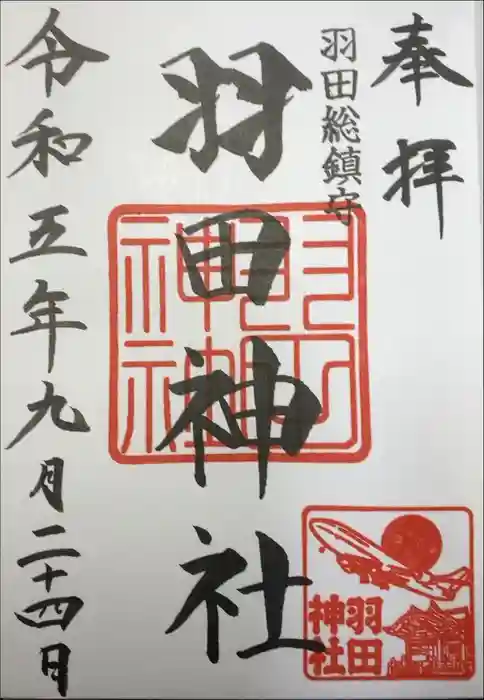 奉拝
羽田総鎮守
羽田神社
令和五年九月二十四日
羽田神社
羽田
神社